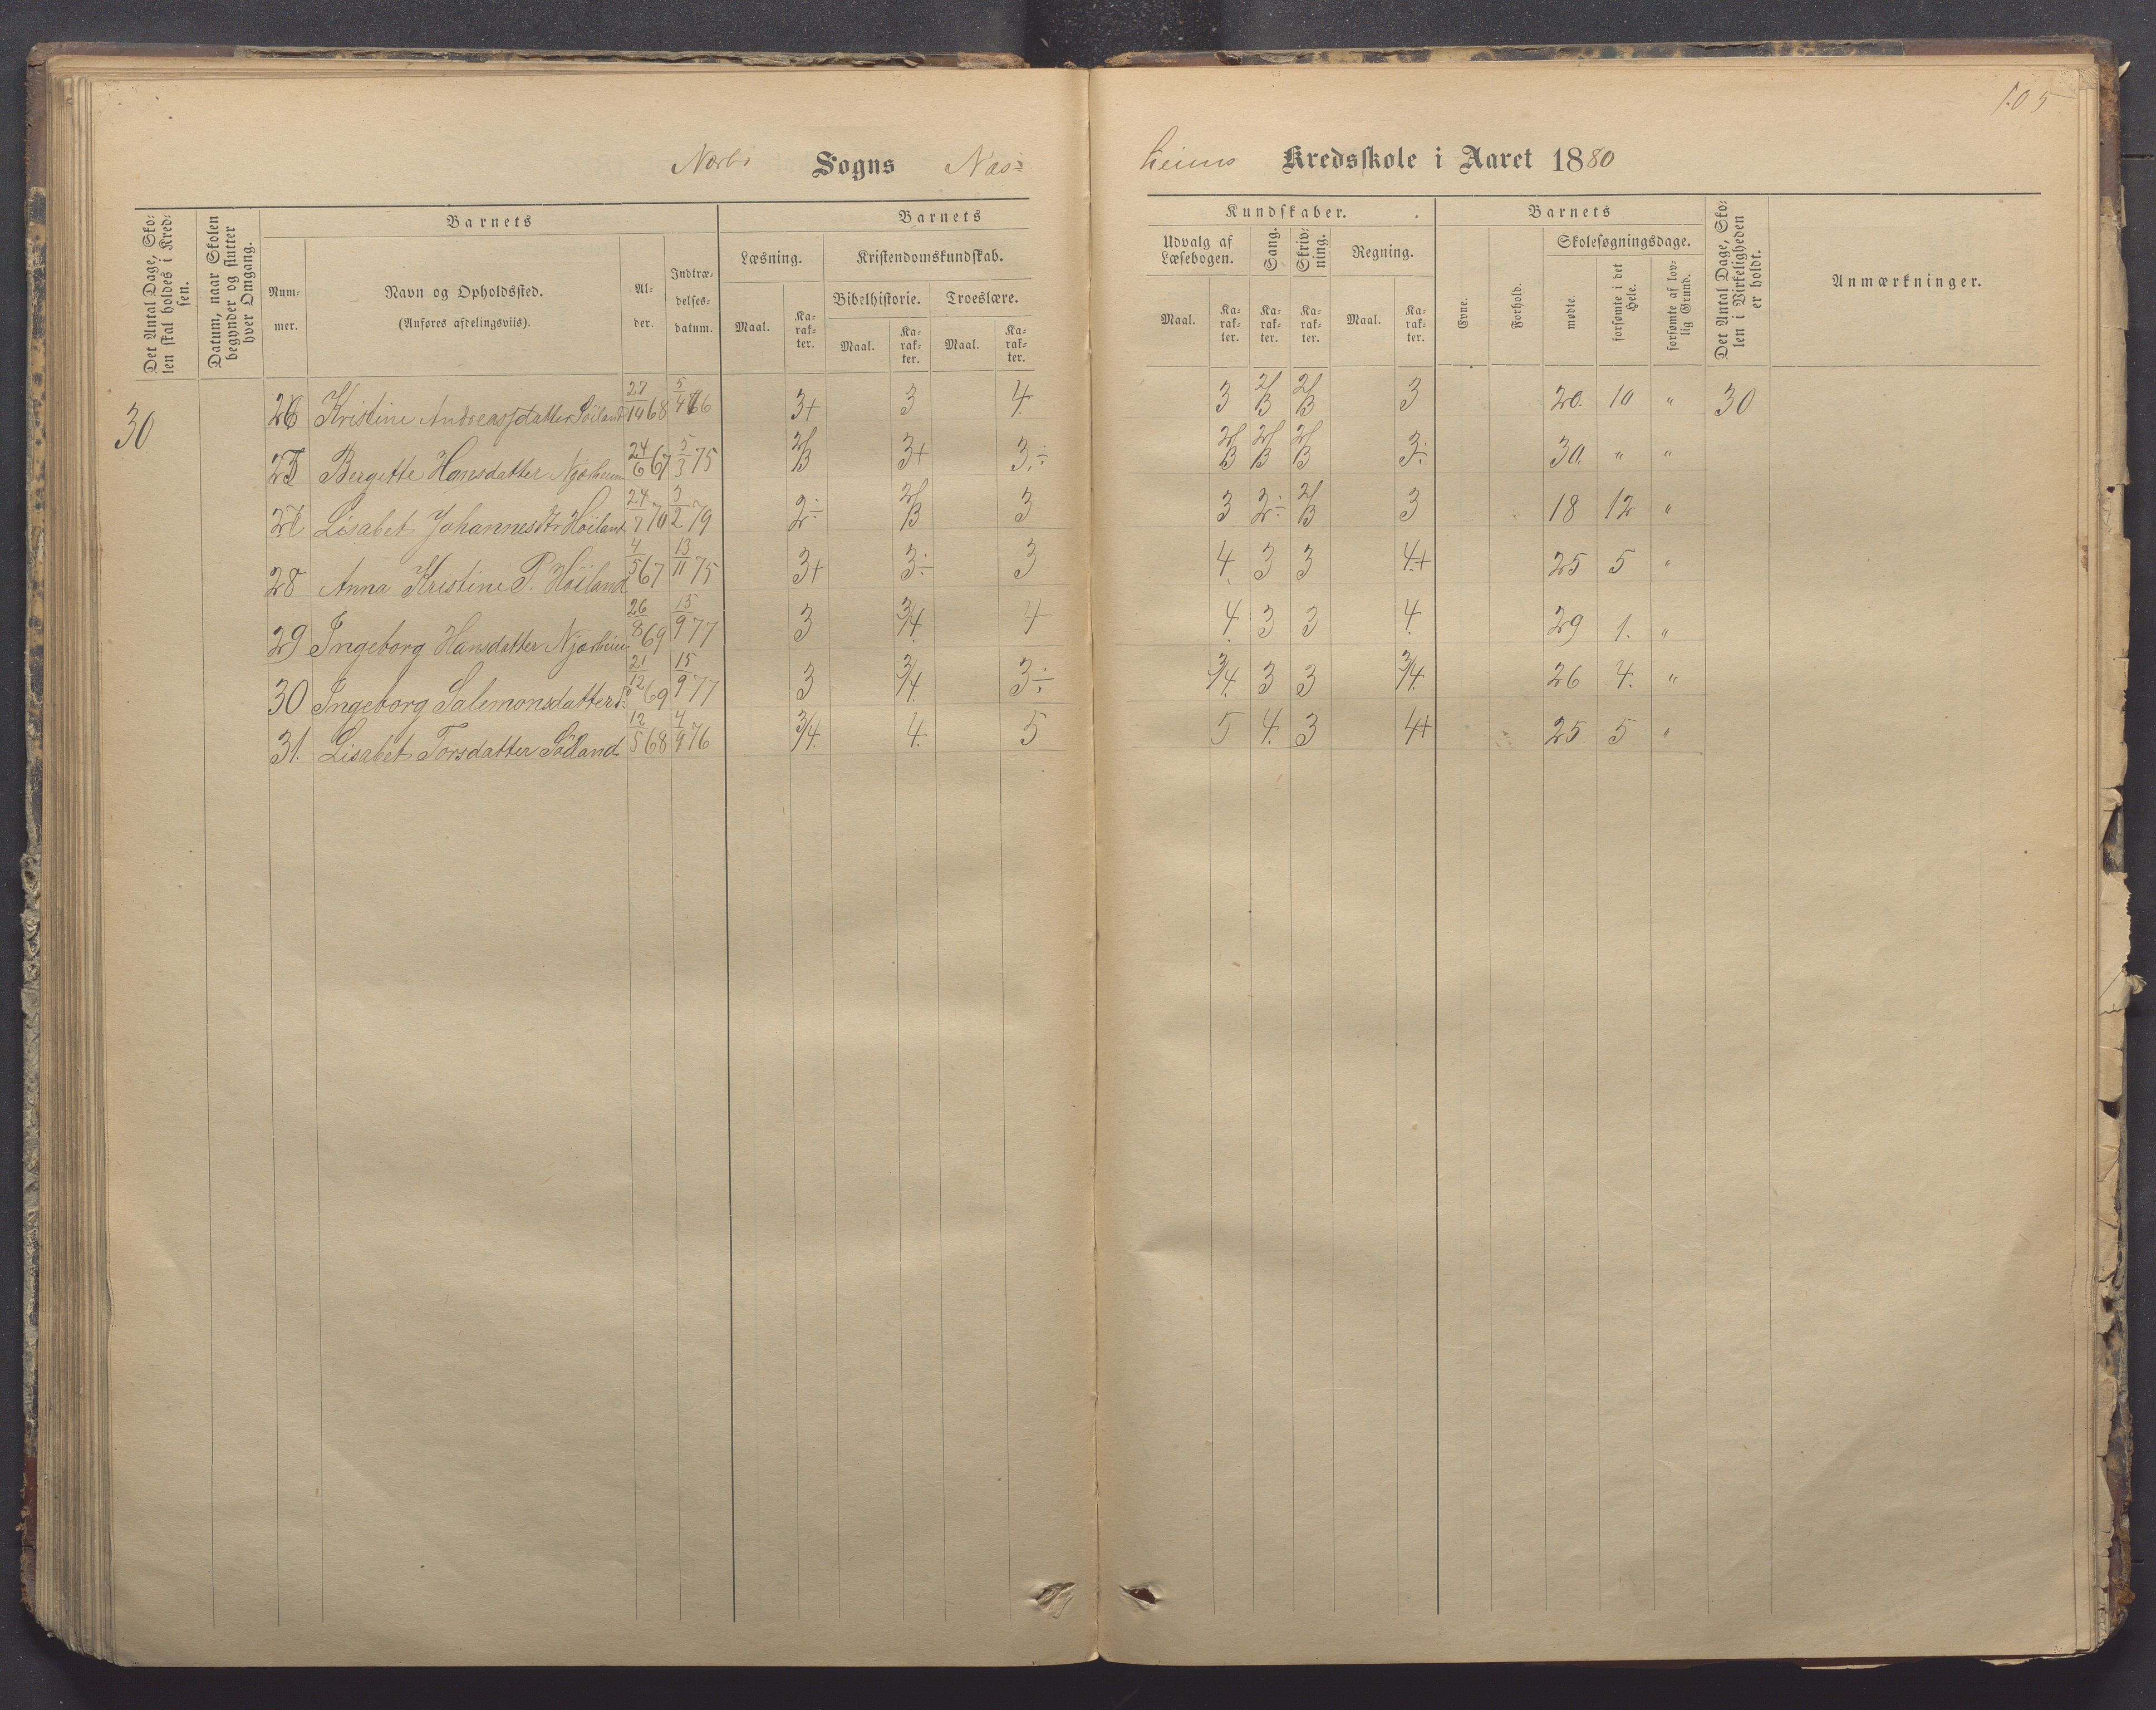 105
Nærbø Sogns Næs=
heims Kredsskole i Aaret 1880
Det Antal Dage, Sko-
len skal holdes i Kred-
sen.
Datum, naar Skolen
begynder og slutter
hver Omgang.
Barnets
Num-
mer.
Navn og Opholdssted.
(Anføres afdelingsviis).
Al-
der.
Indtræ-
delses-
datum.
Barnets
Læsning.
Maal.
Ka-
rak-
ter.
Kristendomskundskab.
Bibelhistorie.
Maal.
Ka-
rak-
ter.
Troeslære.
Maal.
Ka-
rak-
ter.
Kundskaber.
Udvalg af
Læsebogen.
Maal.
Ka-
rak-
ter.
Sang.
Ka-
rak-
ter.
Skriv-
ning.
Ka-
rak-
ter.
Regning.
Maal.
Ka-
rak-
ter.
Barnets
Evne.
Forhold.
Skolesøgningsdage.
mødte.
forsømte i det
Hele.
forsømte af lov-
lig Grund.
Det Antal Dage, Sko-
len i Virkeligheden
er holdt.
Anmærkninger.
30 26 Kristine Andreasdatter 3+ 3 4. 3 2/3 2/3 3 20. 10 " 30
Bergitte Hansdatter Njærheim 24/6 67 5/3 75 2/3 3+ 3÷ 2/3 2/3 2/3 3÷ 30. " "
27 Lisabet Johannesdtr Höiland 24/7 70 3/2 79 2÷ 2/3 3 3 2÷ 2/3 3 18 12 "
28 Anna Kristine P. Höiland 4/5 67 13/11 75 3+ 3÷ 3 4. 3 3 4+ 25 5 "
29 Ingeborg Hansdatter Njærheim 26/8 69 15/9 77 3 3/4. 4 4. 3 3 4. 29 1. "
30 Ingeborg Salemonsdatter 21/12 69 15/9 77 3 3/4. 3÷ 3/4. 3 3 3/4. 26 4. "
31. Lisabet Torsdatter 12/5 68 4/9 76 3/4. 4. 5 5 4. 3 4+ 25 5 "